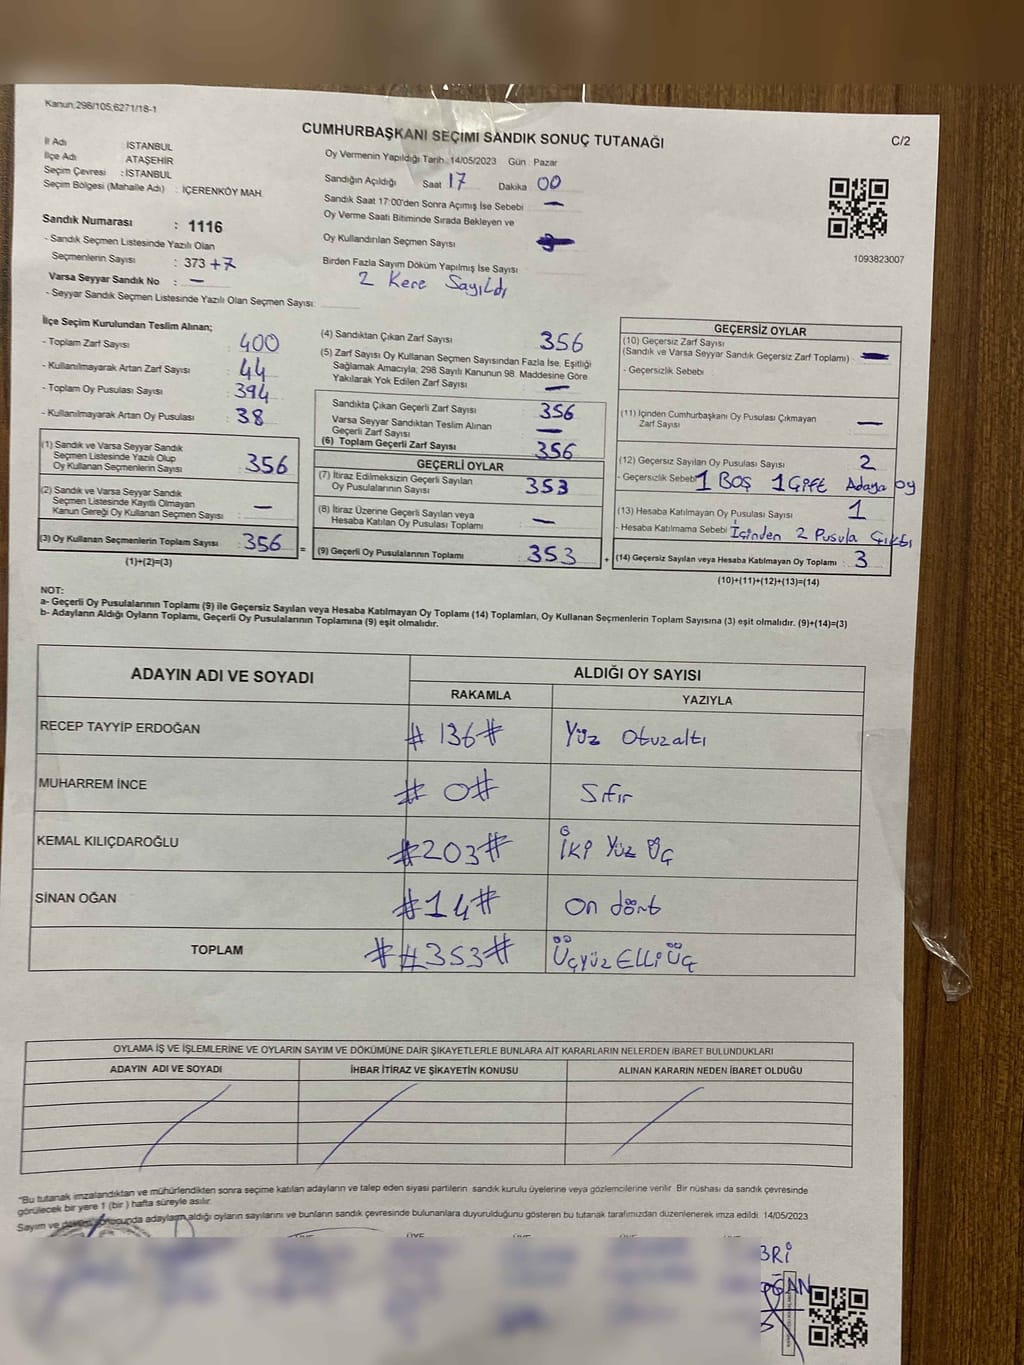 Kanun,298/105,6271/18-1
CUMHURBAŞKANI SEÇİMİ SANDIK SONUÇ TUTANAĞI
C/2
İl Adı : İSTANBUL
İlçe Adı : ATAŞEHİR
Seçim Çevresi : İSTANBUL
Seçim Bölgesi (Mahalle Adı) : İÇERENKÖY MAH.
Sandık Numarası : 1116
- Sandık Seçmen Listesinde Yazılı Olan
Seçmenlerin Sayısı : 373 +7
Varsa Seyyar Sandık No : —
- Seyyar Sandık Seçmen Listesinde Yazılı Olan Seçmen Sayısı:
Oy Vermenin Yapıldığı Tarih: 14/05/2023 Gün : Pazar
Sandığın Açıldığı Saat 17 Dakika 00
Sandık Saat 17:00'den Sonra Açımış İse Sebebi —
Oy Verme Saati Bitiminde Sırada Bekleyen ve
Oy Kullandırılan Seçmen Sayısı
Birden Fazla Sayım Döküm Yapılmış İse Sayısı
2 Kere Sayıldı
1093823007
İlçe Seçim Kurulundan Teslim Alınan;
- Toplam Zarf Sayısı : 400
- Kullanılmayarak Artan Zarf Sayısı : 44
- Toplam Oy Pusulası Sayısı : 394
- Kullanılmayarak Artan Oy Pusulası : 38
(1) Sandık ve Varsa Seyyar Sandık
Seçmen Listesinde Yazılı Olup
Oy Kullanan Seçmenlerin Sayısı : 356
(2) Sandık ve Varsa Seyyar Sandık
Seçmen Listesinde Kayıtlı Olmayan
Kanun Gereği Oy Kullanan Seçmen Sayısı : —
(3) Oy Kullanan Seçmenlerin Toplam Sayısı : 356
(1)+(2)=(3)
(4) Sandıktan Çıkan Zarf Sayısı : 356
(5) Zarf Sayısı Oy Kullanan Seçmen Sayısından Fazla İse, Eşitliği
Sağlamak Amacıyla; 298 Sayılı Kanunun 98. Maddesine Göre
Yakılarak Yok Edilen Zarf Sayısı : —
Sandıkta Çıkan Geçerli Zarf Sayısı : 356
Varsa Seyyar Sandıktan Teslim Alınan
Geçerli Zarf Sayısı : —
(6) Toplam Geçerli Zarf Sayısı : 356
GEÇERLİ OYLAR
(7) İtiraz Edilmeksizin Geçerli Sayılan
Oy Pusulalarının Sayısı : 353
(8) İtiraz Üzerine Geçerli Sayılan veya
Hesaba Katılan Oy Pusulası Toplamı : —
= (9) Geçerli Oy Pusulalarının Toplamı : 353
GEÇERSİZ OYLAR
(10) Geçersiz Zarf Sayısı
(Sandık ve Varsa Seyyar Sandık Geçersiz Zarf Toplamı) : —
- Geçersizlik Sebebi :
(11) İçinden Cumhurbaşkanı Oy Pusulası Çıkmayan
Zarf Sayısı : —
(12) Geçersiz Sayılan Oy Pusulası Sayısı : 2
- Geçersizlik Sebebi 1 BOŞ 1 Çift Adaya oy
(13) Hesaba Katılmayan Oy Pusulası Sayısı : 1
- Hesaba Katılmama Sebebi İçinden 2 Pusula Çıktı
+ (14) Geçersiz Sayılan veya Hesaba Katılmayan Oy Toplamı : 3
(10)+(11)+(12)+(13)=(14)
NOT:
a- Geçerli Oy Pusulalarının Toplamı (9) ile Geçersiz Sayılan veya Hesaba Katılmayan Oy Toplamı (14) Toplamları, Oy Kullanan Seçmenlerin Toplam Sayısına (3) eşit olmalıdır. (9)+(14)=(3)
b- Adayların Aldığı Oyların Toplamı, Geçerli Oy Pusulalarının Toplamına (9) eşit olmalıdır.
ADAYIN ADI VE SOYADI
ALDIĞI OY SAYISI
RAKAMLA YAZIYLA
RECEP TAYYİP ERDOĞAN # 136 # Yüz Otuzaltı
MUHARREM İNCE # 0 # Sıfır
KEMAL KILIÇDAROĞLU #203# İki Yüz Üç
SİNAN OĞAN #14# On dört
TOPLAM ##353# ÜçyüzElliÜç
OYLAMA İŞ VE İŞLEMLERİNE VE OYLARIN SAYIM VE DÖKÜMÜNE DAİR ŞİKAYETLERLE BUNLARA AİT KARARLARIN NELERDEN İBARET BULUNDUKLARI
ADAYIN ADI VE SOYADI İHBAR İTİRAZ VE ŞİKAYETİN KONUSU ALINAN KARARIN NEDEN İBARET OLDUĞU
"Bu tutanak imzalandıktan ve mühürlendikten sonra seçime katılan adayların ve talep eden siyasi partilerin sandık kurulu üyelerine veya gözlemcilerine verilir. Bir nüshası da sandık çevresinde
görülecek bir yere 1 (bir) hafta süreyle asılır.
Sayım ve döküm sonucunda adayların aldığı oyların sayılarını ve bunların sandık çevresinde bulunanlara duyurulduğunu gösteren bu tutanak tarafımızdan düzenlenerek imza edildi. 14/05/2023